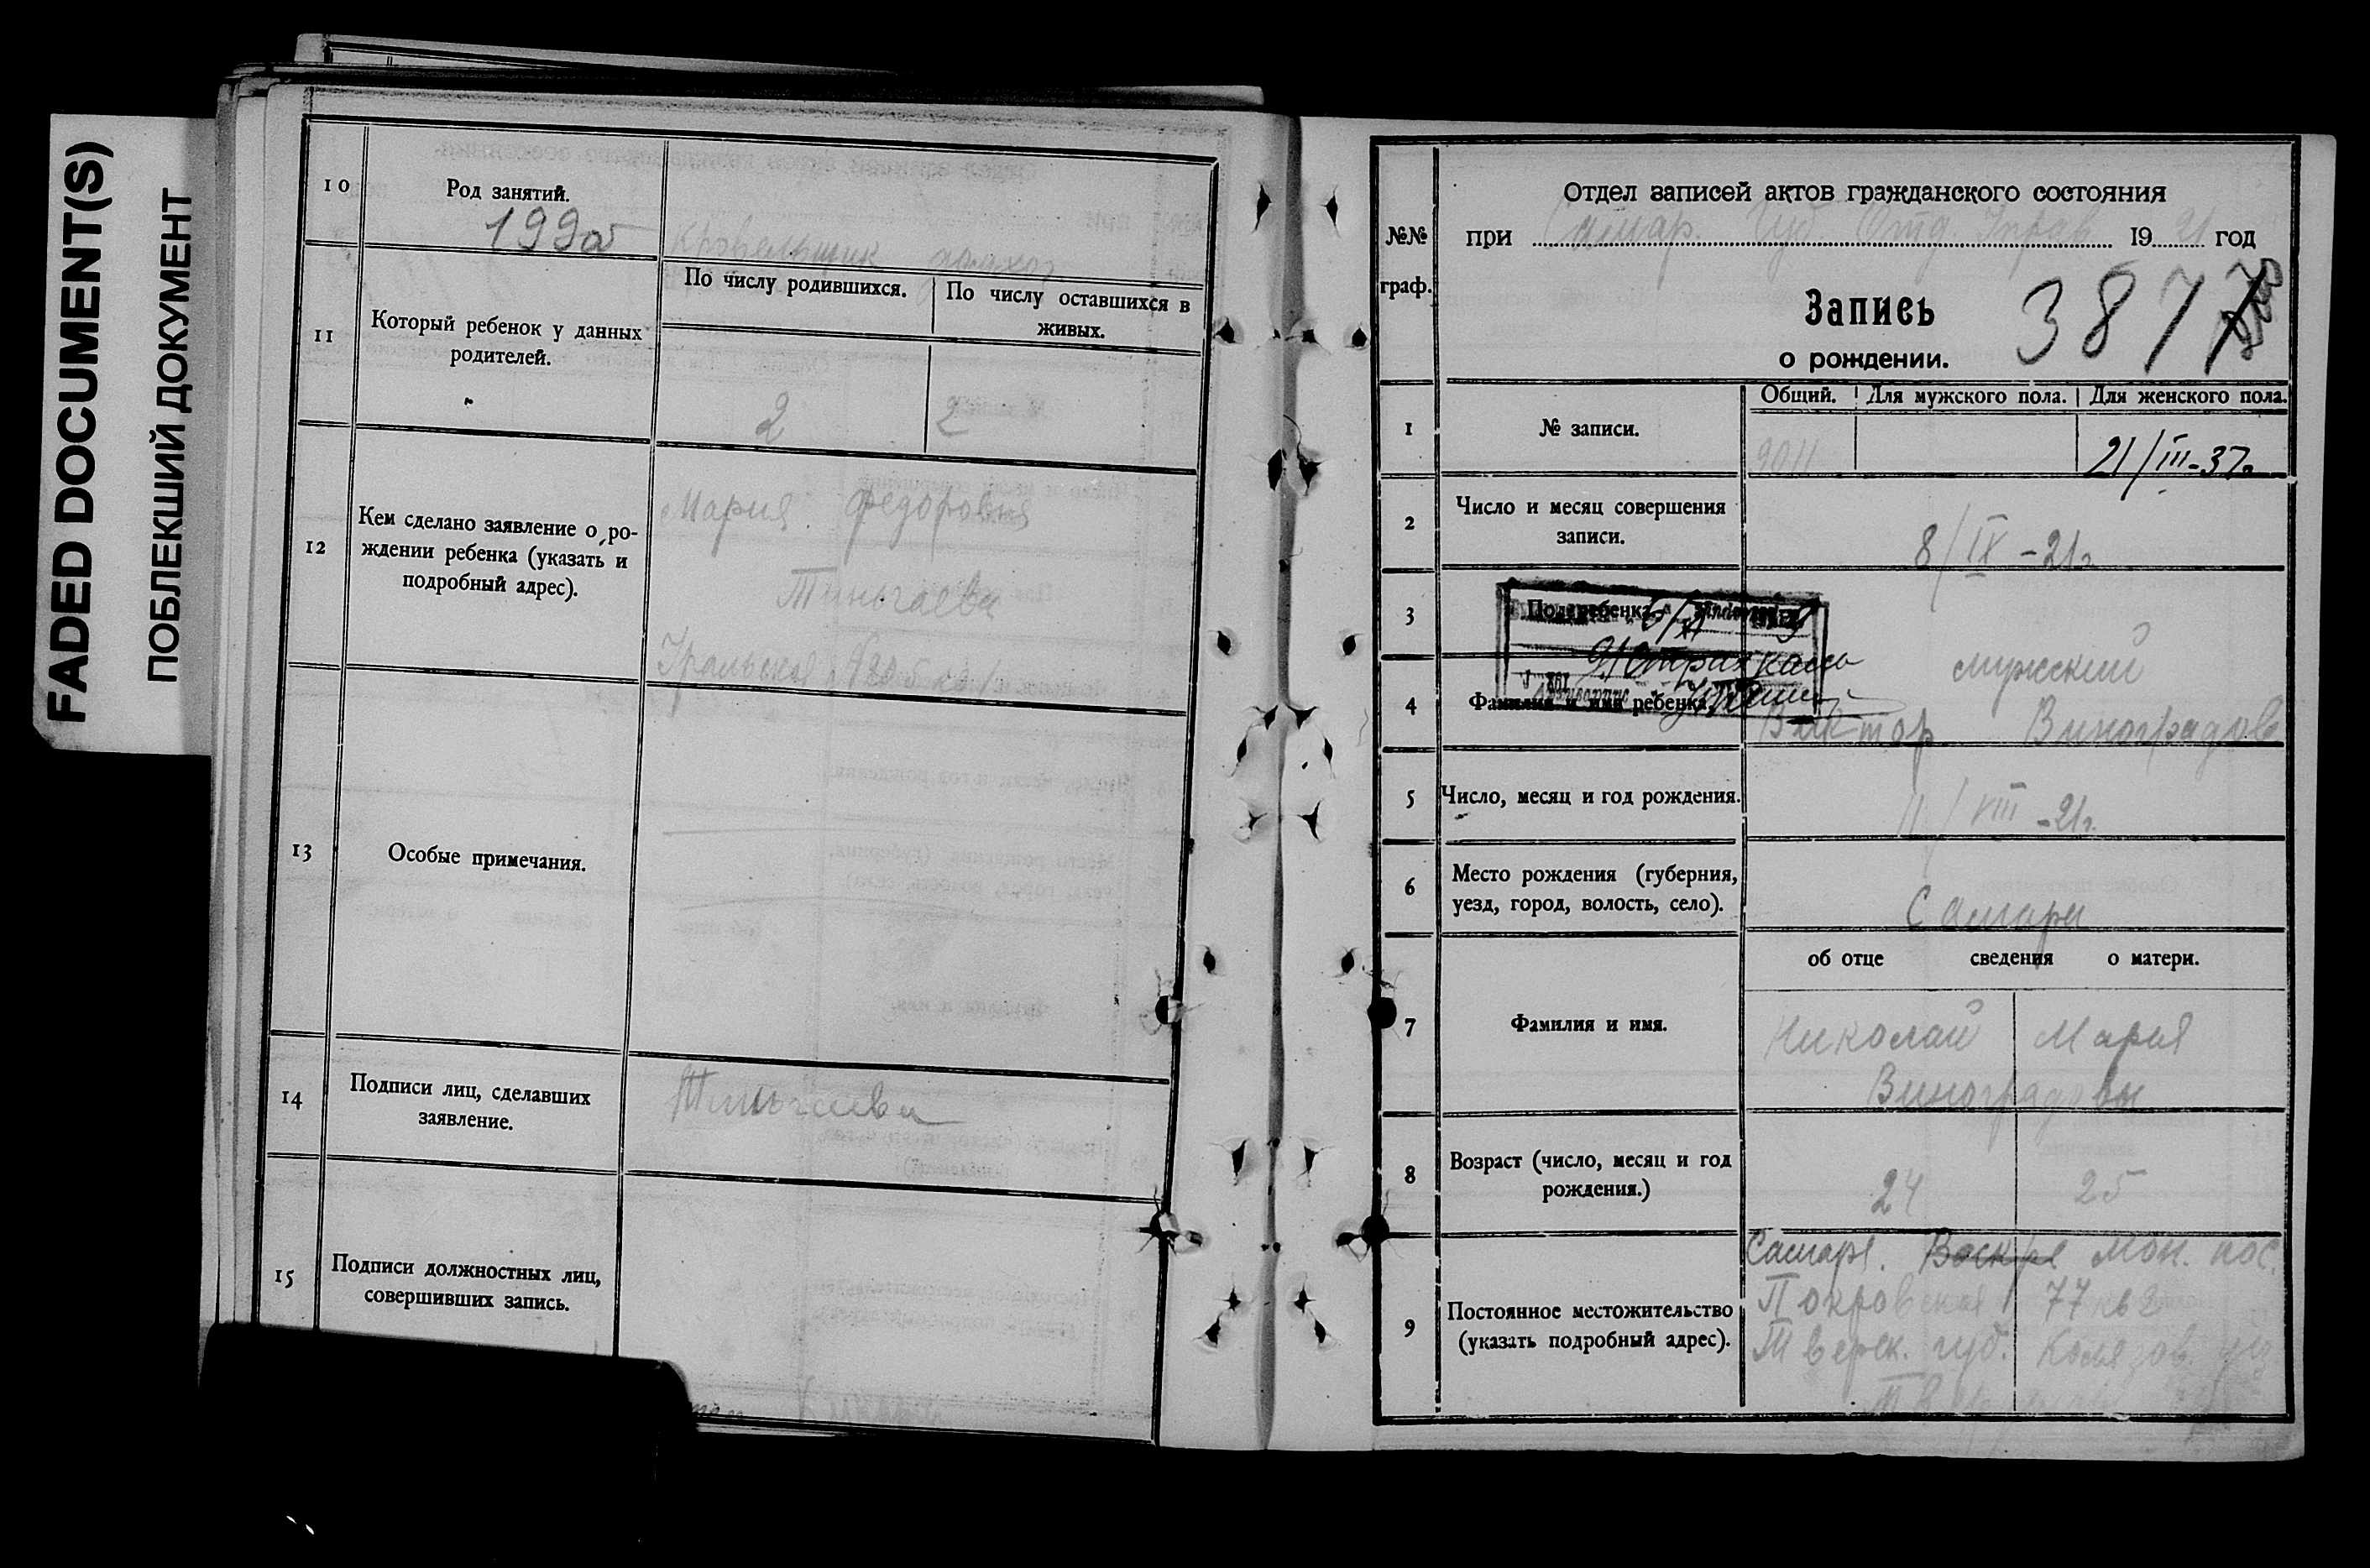 FADED DOCUMENT(S)
ПОБЛЕКШИЙ ДОКУМЕНТ
10
Род занятий.
199а
кровельщик
11
Который ребенок у данных
родителей.
По числу родившихся.
По числу оставшихся в
живых.
2
2
12
Кем сделано заявление о ро-
ждении ребенка (указать и
подробный адрес).
Мария Федоровна
Тиньгаева
Уральская
13
Особые примечания.
14
Подписи лиц, сделавших
заявление.
Тиньгаева
15
Подписи должностных лиц,
совершивших запись.
№№
граф.
Отдел записей актов гражданского состояния
при Самар. Губ. Отд. Управ. 1921 год
Запись
о рождении.
387
1
№ записи.
Общий.
Для мужского пола.
Для женского пола.
9011
21/III-37г
2
Число и месяц совершения
записи.
8/IX-21г
3
Пол ребенка.
мужской
4
Фамилия и имя ребенка.
Виктор Виноградов
5
Число, месяц и год рождения.
11/VIII-21г.
6
Место рождения (губерния,
уезд, город, волость, село).
Самара
об отце сведения о матери.
7
Фамилия и имя.
Николай Мария
Виноградовы
8
Возраст (число, месяц и год
рождения.)
24
25
9
Постоянное местожительство
(указать подробный адрес).
Самара. мон. пос.
Покровская 77 кв 2
Тверск. губ. Колязов. уез